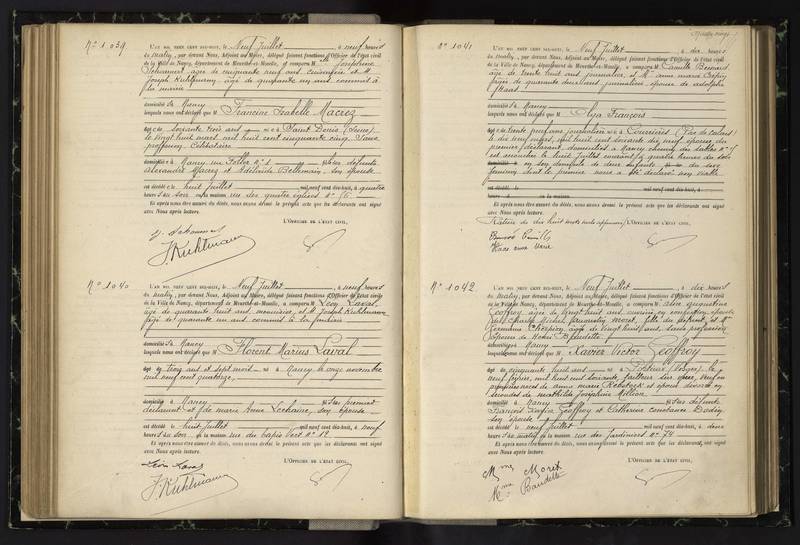 N° 1039
L'AN MIL NEUF CENT DIX-HUIT, le Neuf Juillet, à neuf heures
du matin, par devant Nous, Adjoint au Maire, délégué faisant fonctions d'Officier de l'état civil
de la Ville de Nancy, département de Meurthe-et-Moselle, a comparu Mlle Joséphine
âgée de cinquante neuf ans et M.
Joseph Kuhtmann, âgé de quarante un ans commis à
la mairie
domiciliés à Nancy
lesquels nous ont déclaré que M Francine Isabelle Macrez
âgée de soixante trois ans née à Saint Denis (Seine)
le vingt huit mars mil huit cent cinquante cinq, sans
profession, Célibataire
domiciliée à Nancy, rue n° 1 fille des défunts
Alexandre Macrez et Adélaïde Bellemain, son épouse
est décédée le huit Juillet mil neuf cent dix-huit, à quatre
heures du soir en la maison rue des quatre églises n°
Et après nous être assuré du décès, nous avons dressé le présent acte que les déclarants ont signé
avec Nous après lecture.
L'OFFICIER DE L'ÉTAT CIVIL,
J. Kuhtmann
N° 1040
L'AN MIL NEUF CENT DIX-HUIT, le Neuf Juillet, à neuf heures
du matin, par devant Nous, Adjoint au Maire, délégué faisant fonctions d'Officier de l'état civil
de la Ville de Nancy, département de Meurthe-et-Moselle, a comparu M. Léon Laval,
âgé de quarante huit ans, menuisier, et M. Joseph Kuhtmann
âgé de quarante un ans commis à la mairie
domiciliés à Nancy
lesquels nous ont déclaré que M Florent Marius Laval
âgé de trois ans et sept mois né à Nancy le onze novembre
mil neuf cent quatorze,
domicilié à Nancy fils du premier
déclarant et de Marie Anne Lechaine, son épouse
est décédé le huit Juillet mil neuf cent dix-huit, à neuf
heures du soir, en la maison rue du tapis Vert n° 12
Et après nous être assuré du décès, nous avons dressé le présent acte que les déclarants ont signé
avec Nous après lecture.
L'OFFICIER DE L'ÉTAT CIVIL,
Léon Laval
J. Kuhtmann
N° 1041
L'AN MIL NEUF CENT DIX-HUIT, le Neuf Juillet, à dix heures
du matin, par devant Nous, Adjoint au Maire, délégué faisant fonctions d'Officier de l'état civil
de la Ville de Nancy, département de Meurthe-et-Moselle, a comparu M. Camille
âgé de trente huit ans, journalier, et Me Anne Marie
âgée de quarante deux ans, journalière, épouse de Adolphe
Haas
domiciliés à Nancy
lesquels nous ont déclaré que M Olga François
âgée de trente neuf ans, journalière née à Courrières (Pas de Calais)
le dix neuf mars mil huit cent soixante dix neuf, épouse du
premier déclarant, domiciliée à Nancy chemin des sables n°
est accouchée le huit Juillet courant à quatre heures du soir
en son domicile de deux enfants du sexe
féminin dont le premier nous a été déclaré non viable
est décédé le mil neuf cent dix-huit, à
heures du en la maison
Et après nous être assuré du décès, nous avons dressé le présent acte que les déclarants ont signé
avec Nous après lecture.
L'OFFICIER DE L'ÉTAT CIVIL,
Haas Anne Marie
N° 1042
L'AN MIL NEUF CENT DIX-HUIT, le Neuf Juillet, à dix heures
du matin, par devant Nous, Adjoint au Maire, délégué faisant fonctions d'Officier de l'état civil
de la Ville de Nancy, département de Meurthe-et-Moselle, a comparu M
Geoffroy, âgée de vingt huit ans, épouse
de Charles Michel Fernand Morix, fille du défunt, et Me
Germaine âgée de vingt huit ans, sans profession
épouse de Baudette
domiciliées à Nancy
lesquelles nous ont déclaré que M Xavier Victor Geoffroy
âgé de cinquante huit ans né à (Vosges), le
neuf mil huit cent soixante, tailleur sur
premières noces de Anne Marie Robstock et époux divorcé en
secondes de Mathilde Joséphine
domicilié à Nancy fils des défunts
François Geoffroy et Catherine Constance
son épouse
est décédé le neuf Juillet mil neuf cent dix-huit, à deux
heures du matin, en la maison rue des Jardiniers n° 74
Et après nous être assuré du décès, nous avons dressé le présent acte que les déclarants ont signé
avec Nous après lecture.
L'OFFICIER DE L'ÉTAT CIVIL,
Mme Morix
Mme Baudette